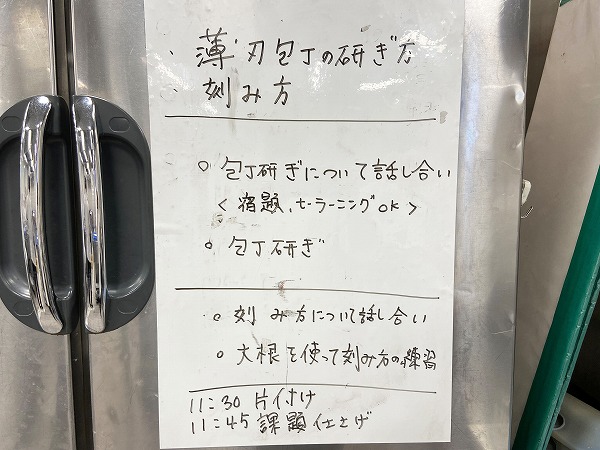 ・薄刃包丁の研ぎ方
・刻み方
○包丁研ぎについて話し合い
<宿題、セーラーニングOK>
○包丁研ぎ
○刻み方について話し合い
○大根を使って刻み方の練習
11:30 片付け
11:45 課題仕上げ